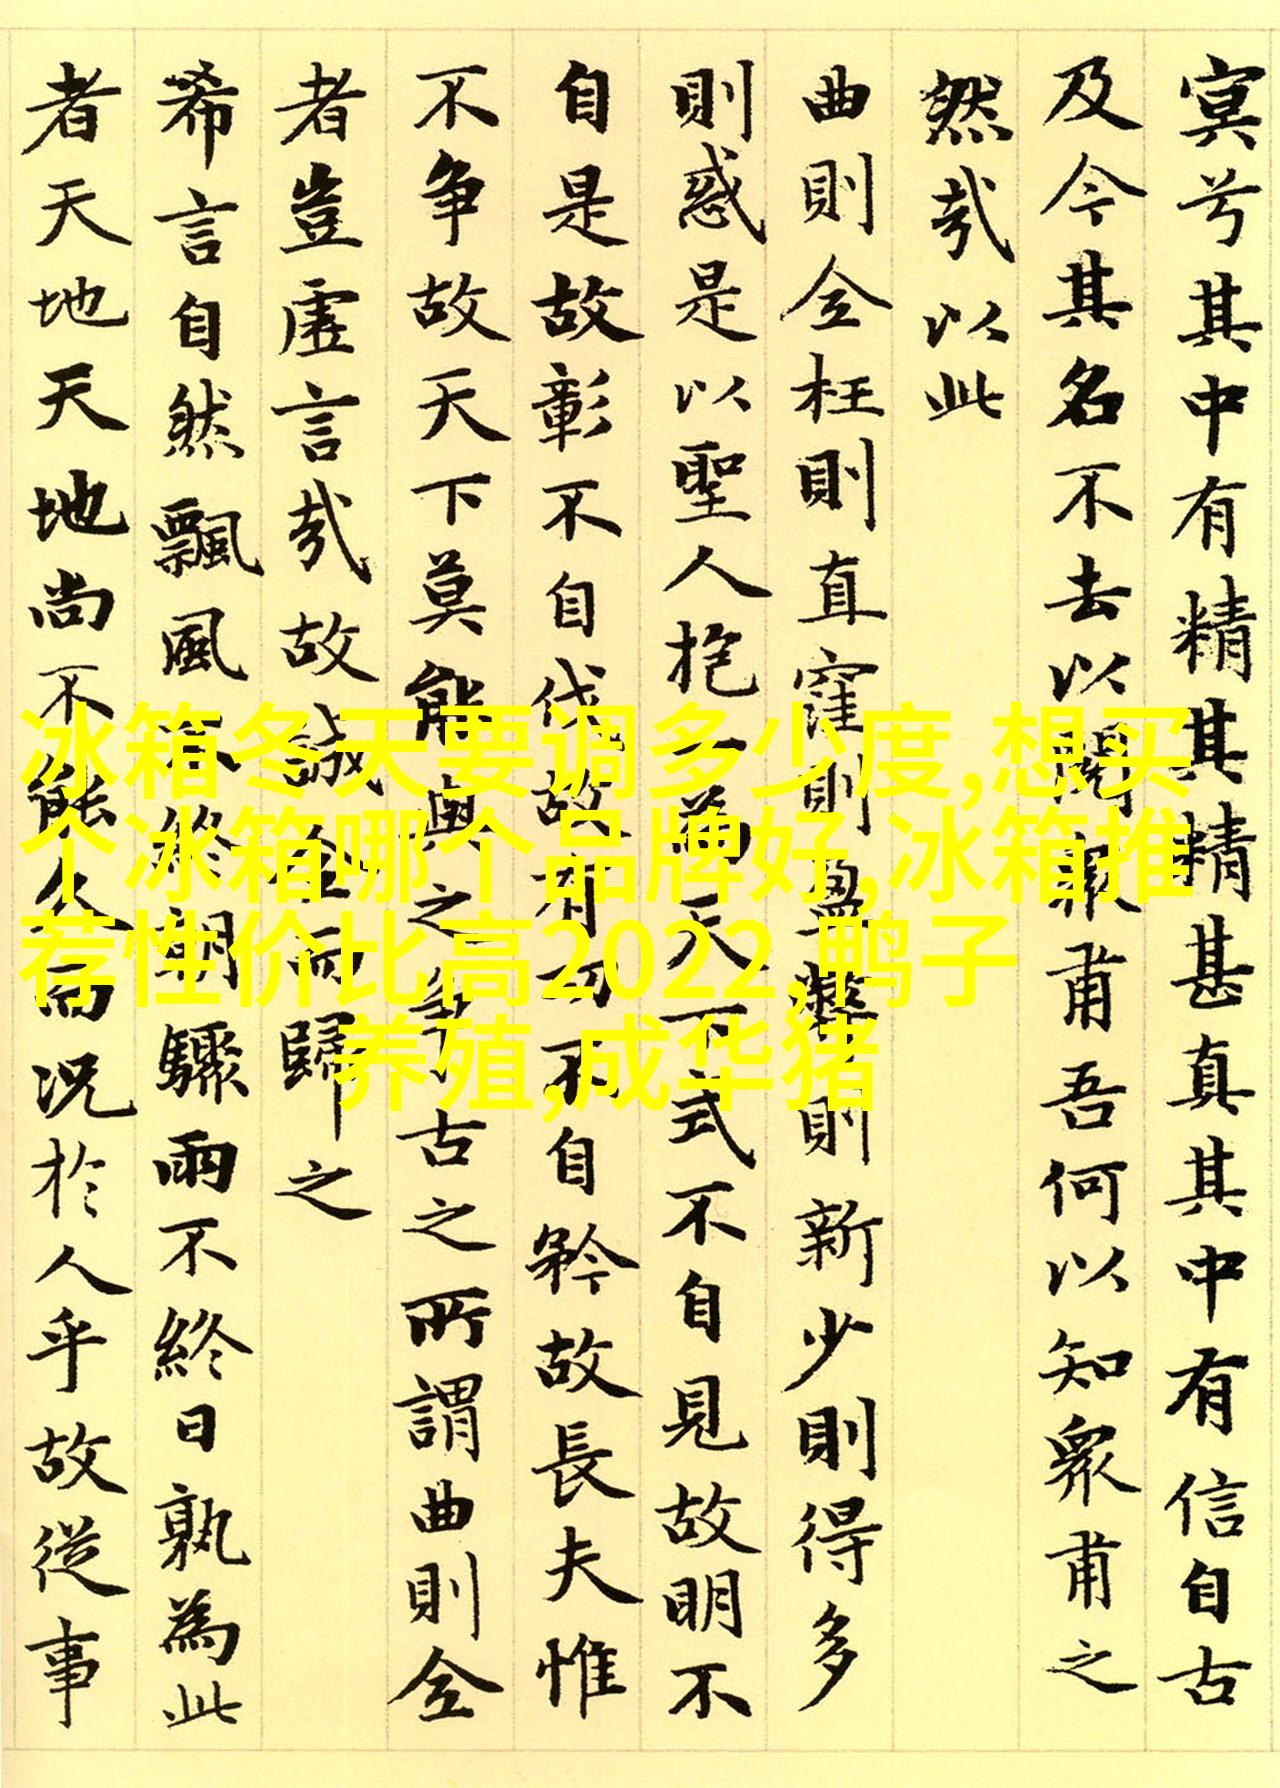 冥兮其中有精其精甚真其中有信自古
及今其名不去以閱衆甫吾何以知衆甫之
然哉以此
曲則全枉則直窪則盈弊則新少則得多
則惑是以聖人抱一為天下式不自見故明不
自是故彰不自伐故有功不自矜故長夫惟
不争故天下莫能與之争古之所謂曲則全
者豈虚言哉故誠全而歸之
希言自然飄風不終朝驟雨不終日孰為此
者天地天地尚不能久而况於人乎故從事
冰箱冬天要调多少度,想买
个冰箱哪个品牌好,冰箱推
荐性价比高2022,鸭子
养殖,成华猪